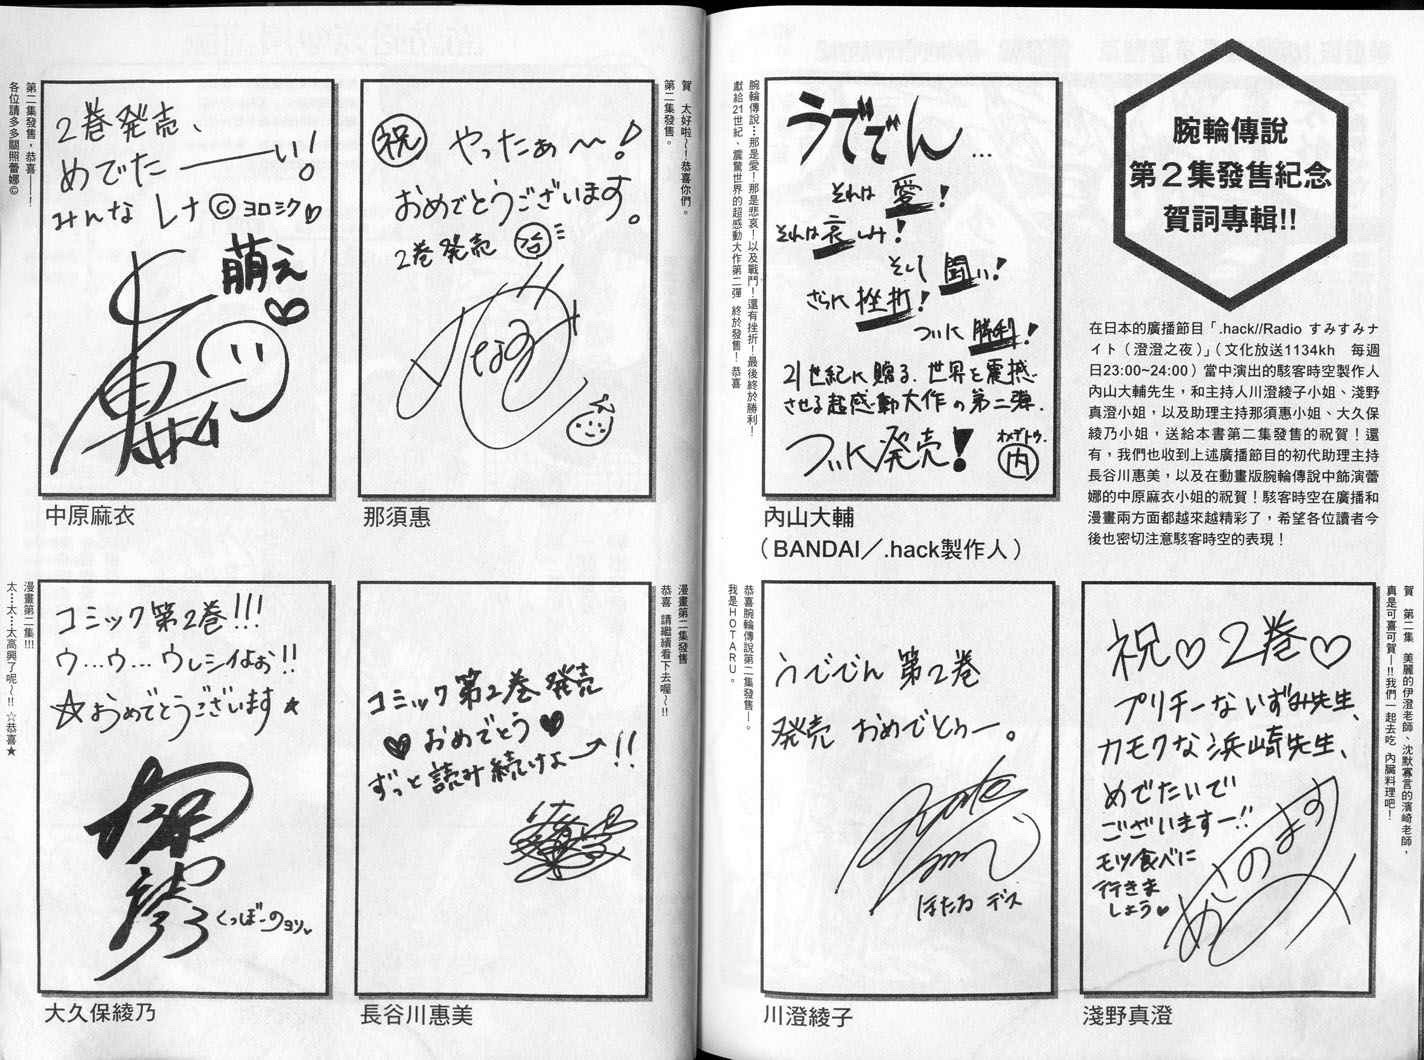 腕輪傳說
第2集發售紀念
賀詞專輯!!
在日本的廣播節目「.hack//Radio すみすみナ
イト（澄澄之夜）」（文化放送1134kh　每週
日23:00~24:00）當中演出的駭客時空製作人
內山大輔先生，和主持人川澄綾子小姐、淺野
真澄小姐，以及助理主持那須惠小姐、大久保
綾乃小姐，送給本書第二集發售的祝賀！還
有，我們也收到上述廣播節目的初代助理主持
長谷川惠美，以及在動畫版腕輪傳說中飾演蕾
娜的中原麻衣小姐的祝賀！駭客時空在廣播和
漫畫兩方面都越來越精彩了，希望各位讀者今
後也密切注意駭客時空的表現！
うででん…
それは愛！
それは哀しみ！
そして闘い！
さらに挫折！
ついに勝利！
21世紀に贈る、世界を震撼
させる超感動大作の第二弾、
ついに発売！
オメデトウ。
内
腕輪傳說…那是愛！那是悲哀！以及戰鬥！還有挫折！最後終於勝利！
獻給21世紀、震驚世界的超感動大作第二彈 終於發售！恭喜
內山大輔
（BANDAI／.hack製作人）
祝♡2巻♡
プリチーないずみ先生、
カモクな浜崎先生、
めでたいで
ございますー!!
モツ食べに
行きま
しょう♥
あさのますみ
賀　第二集 美麗的伊澄老師、沈默寡言的濱崎老師，
真是可喜可賀—!!我們一起去吃 內臟料理吧！
淺野真澄
うででん 第2巻
発売 おめでとうー。
ほたる デス
恭喜腕輪傳說第二集發售—。
我是HOTARU。
川澄綾子
祝 やったぁ〜！
おめでとうございます。
2巻発売
なす
賀　太好啦~！恭喜你們。
第二集發售。
那須惠
2巻発売、
めでたーーい！
みんな レナ©ヨロシク♡
萌え
♥
第二集發售，恭喜——！
各位請多多關照蕾娜©
中原麻衣
コミック第2巻 発売
♥おめでとう♥
ずっと読み続けよー!!
漫畫第二集發售
恭喜 請繼續看下去喔~!!
長谷川惠美
コミック第2巻!!!
ウ…ウ…ウレシイよぉ!!
☆おめでとうございます★
くっぼーのヨソ
漫畫第二集!!!
太…太……太高興了呢~!! ☆恭喜★
大久保綾乃